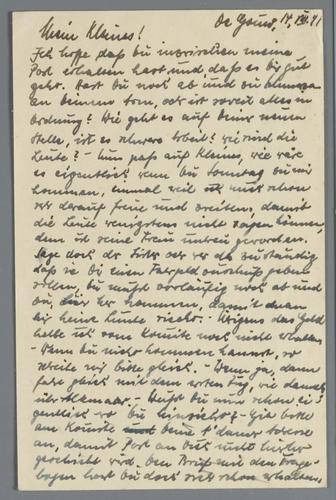 Mein Kleines! De Goins, 14. VIII. 41
Ich hoffe daß Du inzwischen meine
Post erhalten hast und, daß es Dir gut
geht. Hast Du noch ab und zu
an Deinem Arm, oder ist soweit alles in
Ordnung? Wie geht es auf Deiner neuen
Stelle, ist es schwere Arbeit? Wie sind die
Leute? - Nun paß auf Kleines, wie wäre
es eigentlich wenn Du Sonntag zu mir
kommen, einmal weil ich mich schon
sehr darauf freue und zweitens damit
die Leute wenigstens nicht sagen können,
dem ist seine Frau untreu geworden.
Sage doch der oder wer da zuständig
daß sie Dir einen Fahrgeld vorschuß geben
sollen, Du mußt vorläufig noch ab und
zu, hier her kommen, damit man
hier keine Lunte riecht. - Übrigens das Geld
habe ich vom Komite noch nicht erhalten
- Wenn Du nicht kommen kannst, so
schreibe mir bitte gleich. - Wenn ja, dann
fahre gleich mit dem ersten Zug, wie damals
über Alkmaar. - Weißt Du nun schon ei-
gentlich wo Du hinziehst? - Gib bitte
am Komite Deine Adresse
an, damit Post an Dich nicht hierher
geschickt wird. Den Brief mit den Frage-
bogen hast Du doch wohl schon erhalten,